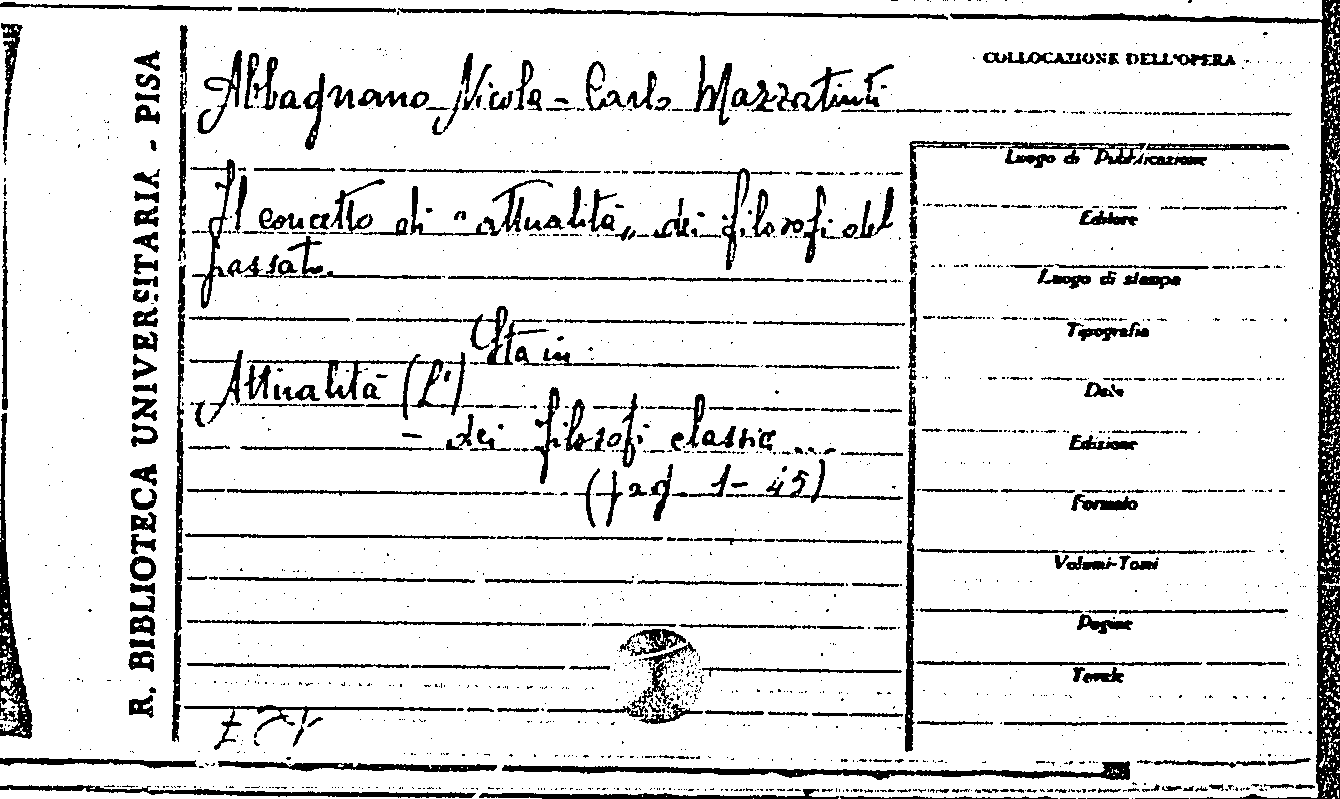 R. BIBLIOTECA UNIVERSITARIA - PISA
COLLOCAZIONE DELL'OPERA
Abbagnano Nicola - Carlo Mazzantini
Il concetto di "attualità" dei filosofi del
passato.
Sta in
Attualità (L')
- dei filosofi classici ...
(pag. 1-45)
Luogo di Pubblicazione
Editore
Luogo di stampa
Tipografia
Data
Edizione
Formato
Volumi-Tomi
Pagine
Tavole